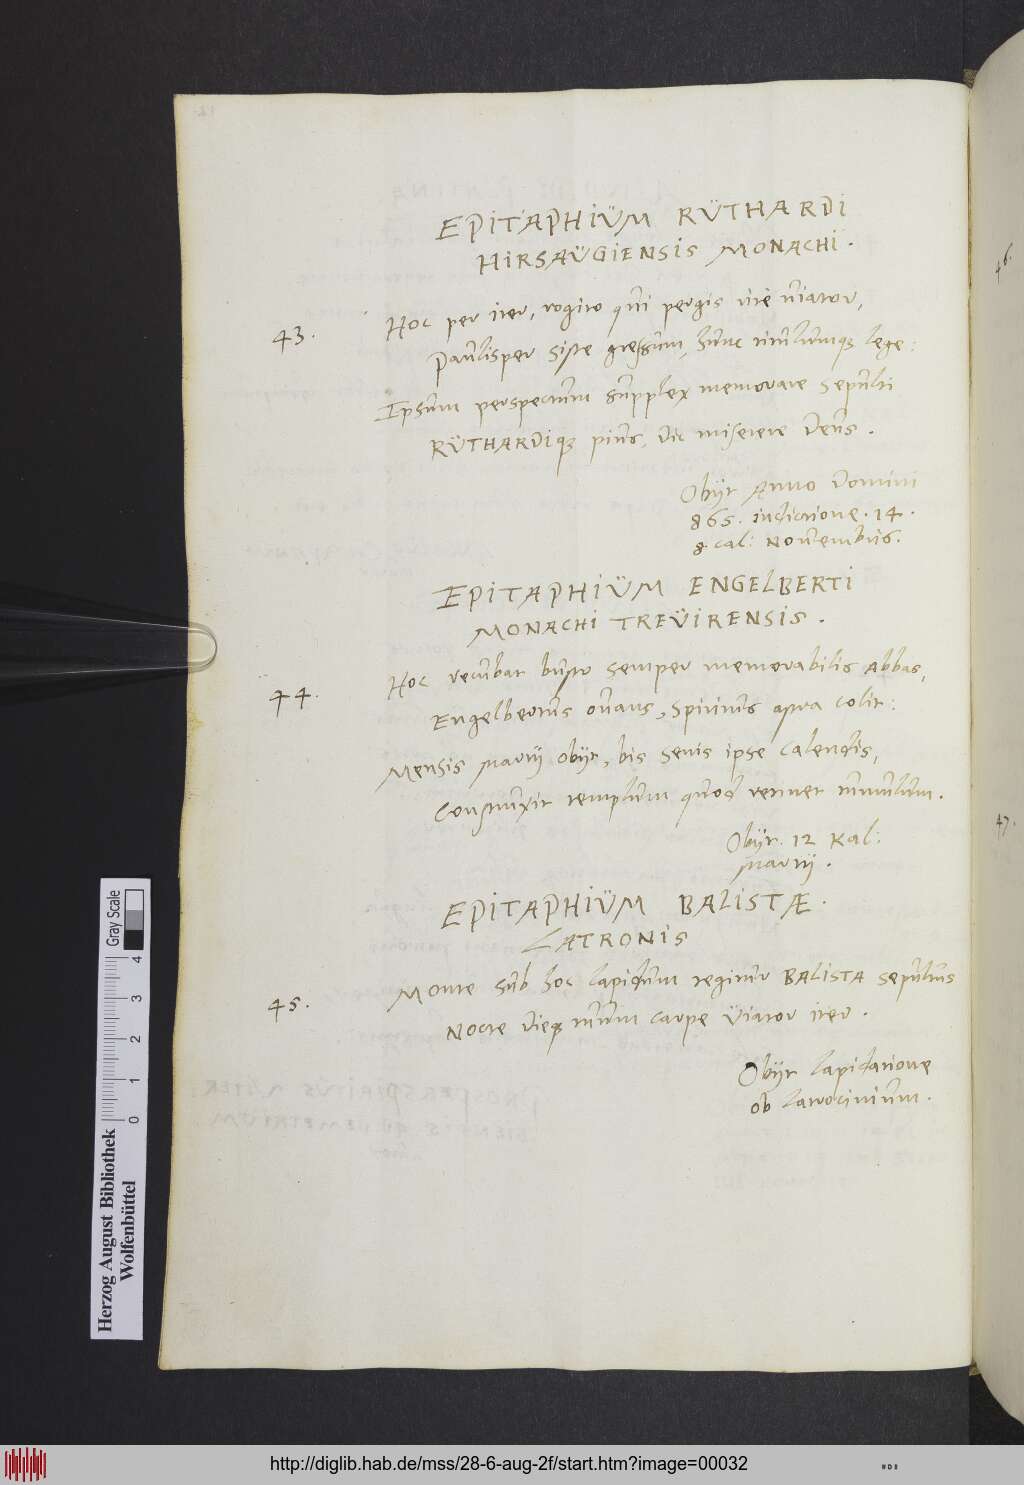 EPITAPHIÜM RÜTHARDI
HIRSAÜGIENSIS MONACHI.
43. Hoc per iter, rogito qui pergis rite viator,
Paulisper siste gressum, hunc titulumq; lege:
Ipsum perspectum supplex memorare sepulti
RÜTHARDIq; pius, dic miserere Deus.
Obijt Anno Domini
865. indictione. 14.
8. cal: Novembris.
EPITAPHIÜM ENGELBERTI
MONACHI TREÜIRENSIS.
44. Hoc recubat busto semper memorabilis abbas,
Engelbertus ovans, Spiritus astra colit:
Mensis martij obijt, bis senis ipse calendis,
Construxit templum quod retinet tumulum.
Obijt. 12 Kal:
martij.
EPITAPHIÜM BALISTÆ.
LATRONIS
45. Monte sub hoc lapidum tegitur BALISTA sepultus
Nocte dieq; tutum carpe Viator iter.
Obijt lapidatione
ob latrocinium.
46.
47.
Herzog August Bibliothek
Wolfenbüttel
Gray Scale
0 1 2 3 4
http://diglib.hab.de/mss/28-6-aug-2f/start.htm?image=00032